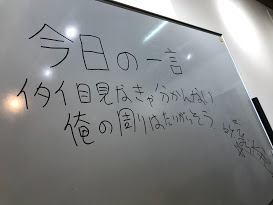 今日の一言
イタイ目見なきゃ分かんない
俺の周りはたりがらそう